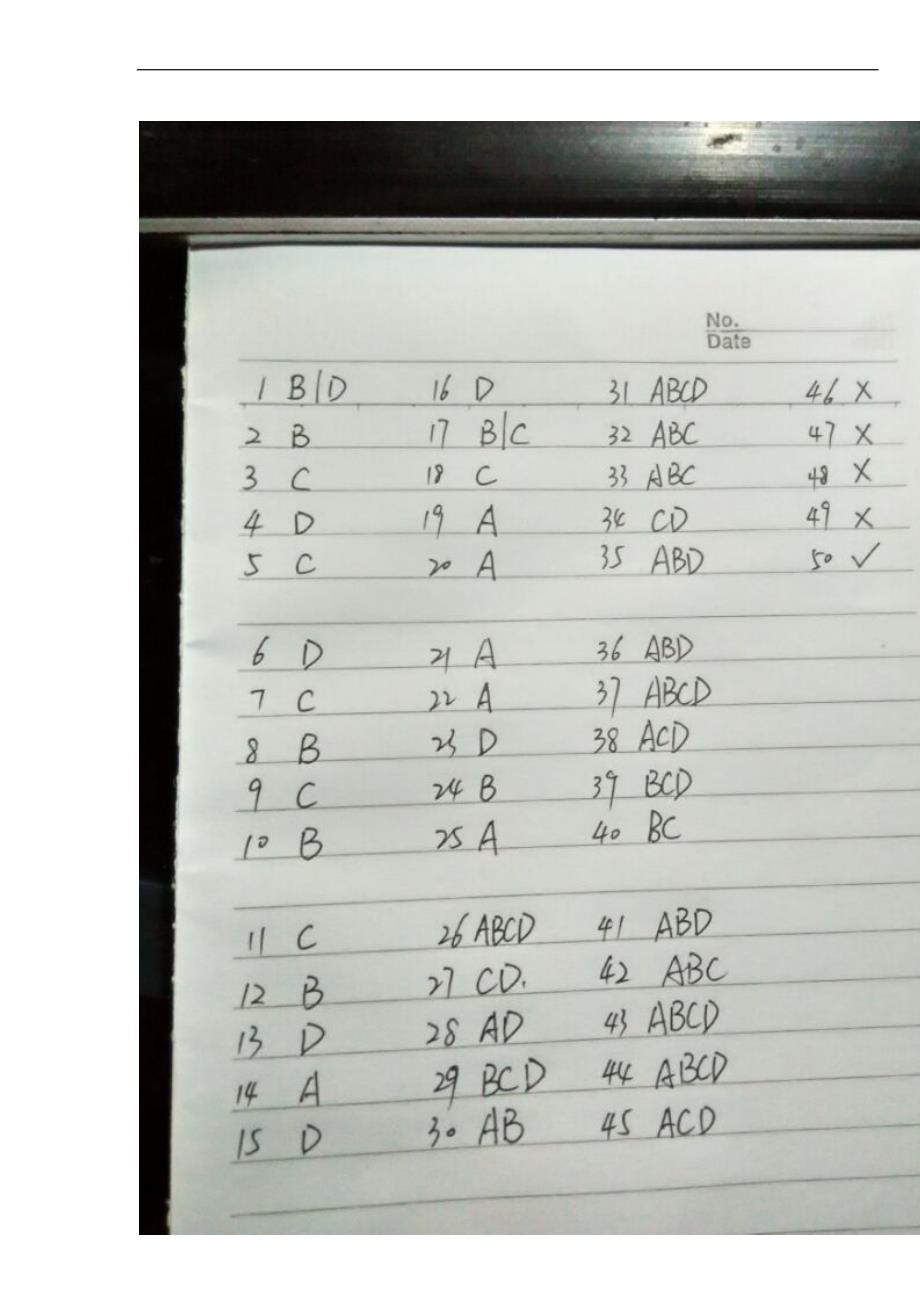 No.
Date
1 B/D 16 D 31 ABCD 46 ×
2 B 17 B/C 32 ABC 47 ×
3 C 18 C 33 ABC 48 ×
4 D 19 A 34 CD 49 ×
5 C 20 A 35 ABD 50 ✓
6 D 21 A 36 ABD
7 C 22 A 37 ABCD
8 B 23 D 38 ACD
9 C 24 B 39 BCD
10 B 25 A 40 BC
11 C 26 ABCD 41 ABD
12 B 27 CD. 42 ABC
13 D 28 AD 43 ABCD
14 A 29 BCD 44 ABCD
15 D 30 AB 45 ACD